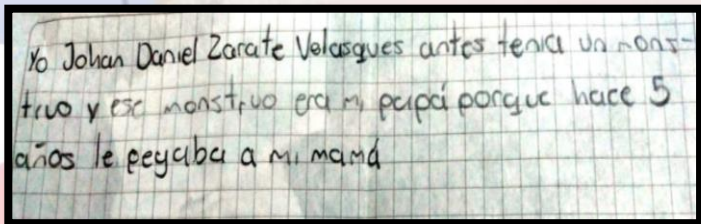 Yo Johan Daniel Zarate Velasques antes tenia un mons-
truo y ese monstruo era mi papá porque hace 5
años le pegaba a mi mamá